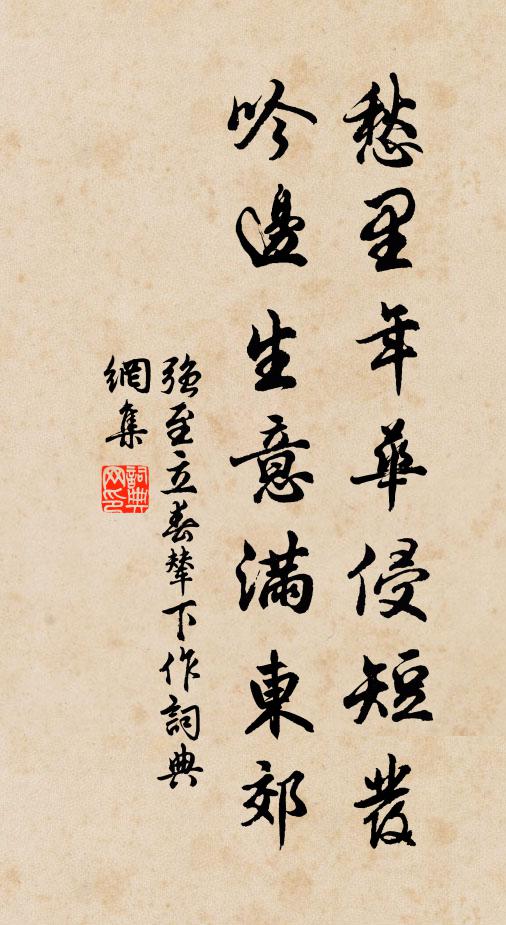 愁里年華侵短發
吟邊生意滿東郊
強至立春輦下作詞典
網集
詞典網印